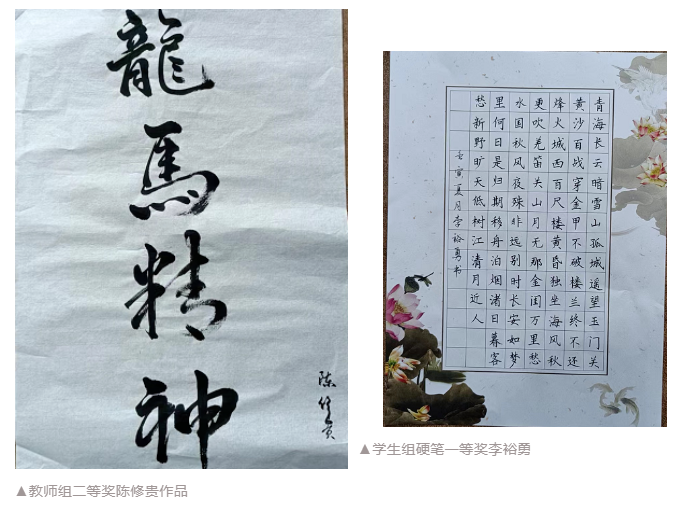 龍馬精神
陈修贵
▲教师组二等奖陈修贵作品
青海长云暗雪山孤城遥望玉门关
黄沙百战穿金甲不破楼兰终不还
烽火城西百尺楼黄昏独坐海风秋
更吹羌笛关山月无那金闺万里愁
水国秋风夜殊非远别时长安如梦
里何日是归期移舟泊烟渚日暮客
愁新野旷天低树江清月近人
壬寅夏月李裕勇书
▲学生组硬笔一等奖李裕勇